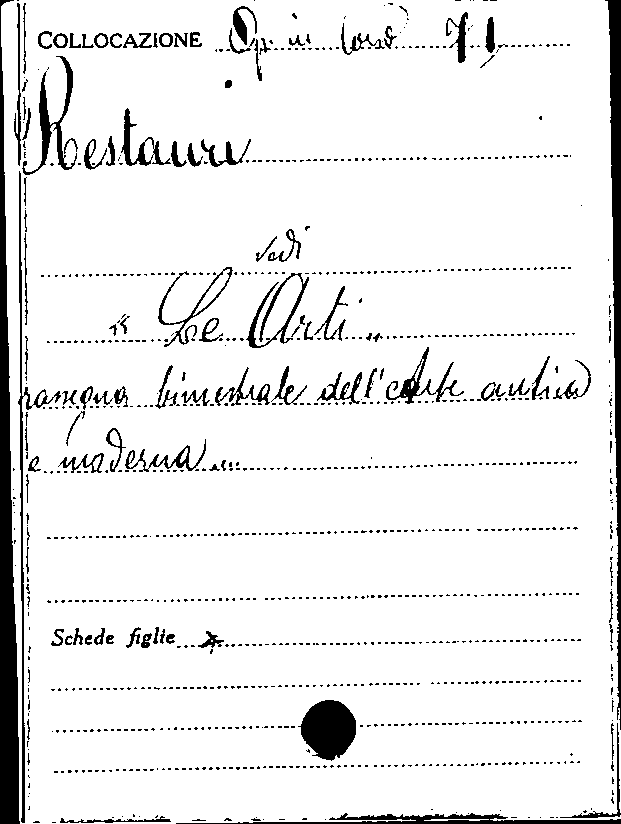 COLLOCAZIONE Op in Corso 71
Restauri
vedi
"Le Arti"
rassegna bimestrale dell'Arte antica
e moderna"
Schede figlie